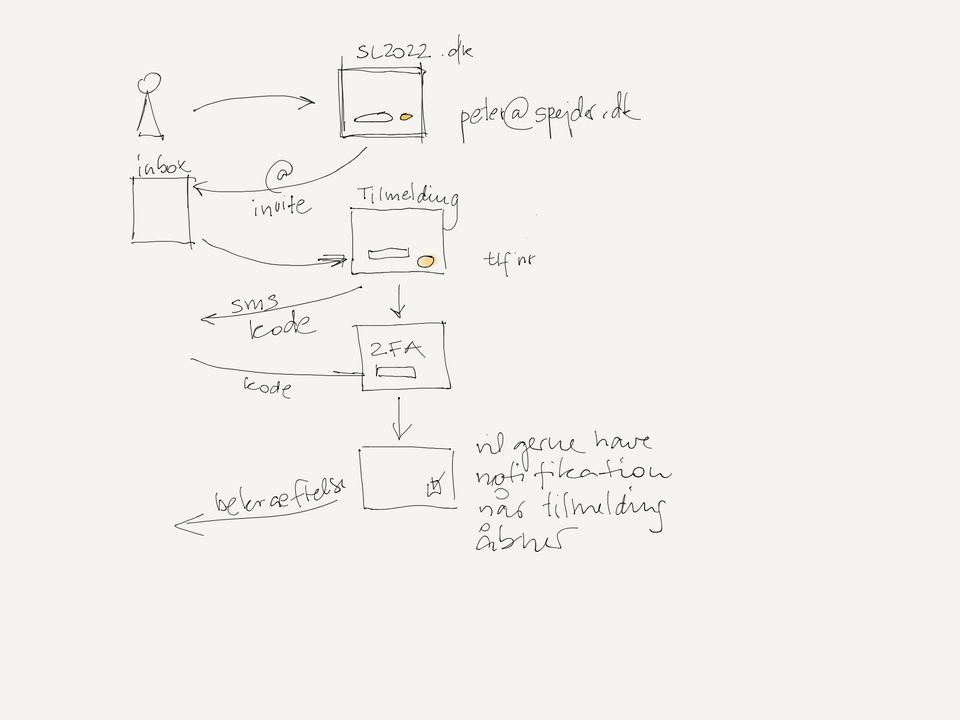 SL2022.dk
peter@spejder.dk
inbox
@
invite
Tilmelding
tlf nr
sms
kode
2FA
kode
vil gerne have
notifikation
når tilmelding
åbner
bekræftelse